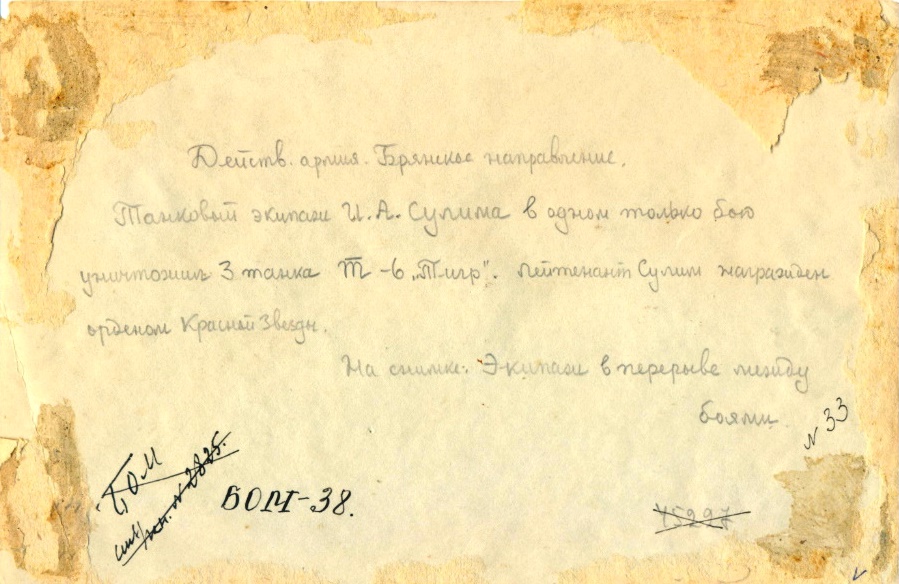 Действ. армия. Брянское направление.
Танковый экипаж И. А. Сулима в одном только бою
уничтожил 3 танка Т-6 „Тигр". Лейтенант Сулим награжден
орденом Красной Звезды.
На снимке: Экипаж в перерыве между
боями.
N 33
БОМ
инв. N 2825.
БОМ-38.
45297